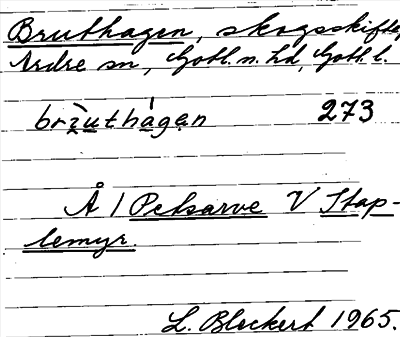 Bruthagen, skogsskifte,
Ardre sn, Gotl. n. hd, Gotl. l.
brìuthágan 273
Å / Petsarve V Stap-
lemyr.
L. Blockert 1965.